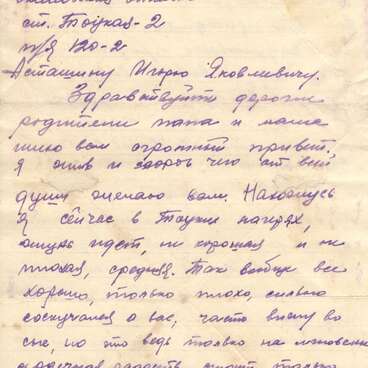 ст. Тоцкая-2
п/я 120-2
Асташину Игорю Яковлевичу.
Здравствуйте дорогие
родители папа и мама
шлю вам огромный привет,
я жив и здоров чего от всей
души желаю вам. Нахожусь
я сейчас в Тоцких лагерях,
жизнь идет, не хорошая и не
плохая, средняя. Так вобщем все
хорошо, только плохо, сильно
соскучился о вас, часто вижу во
сне, но это ведь только на мгновение